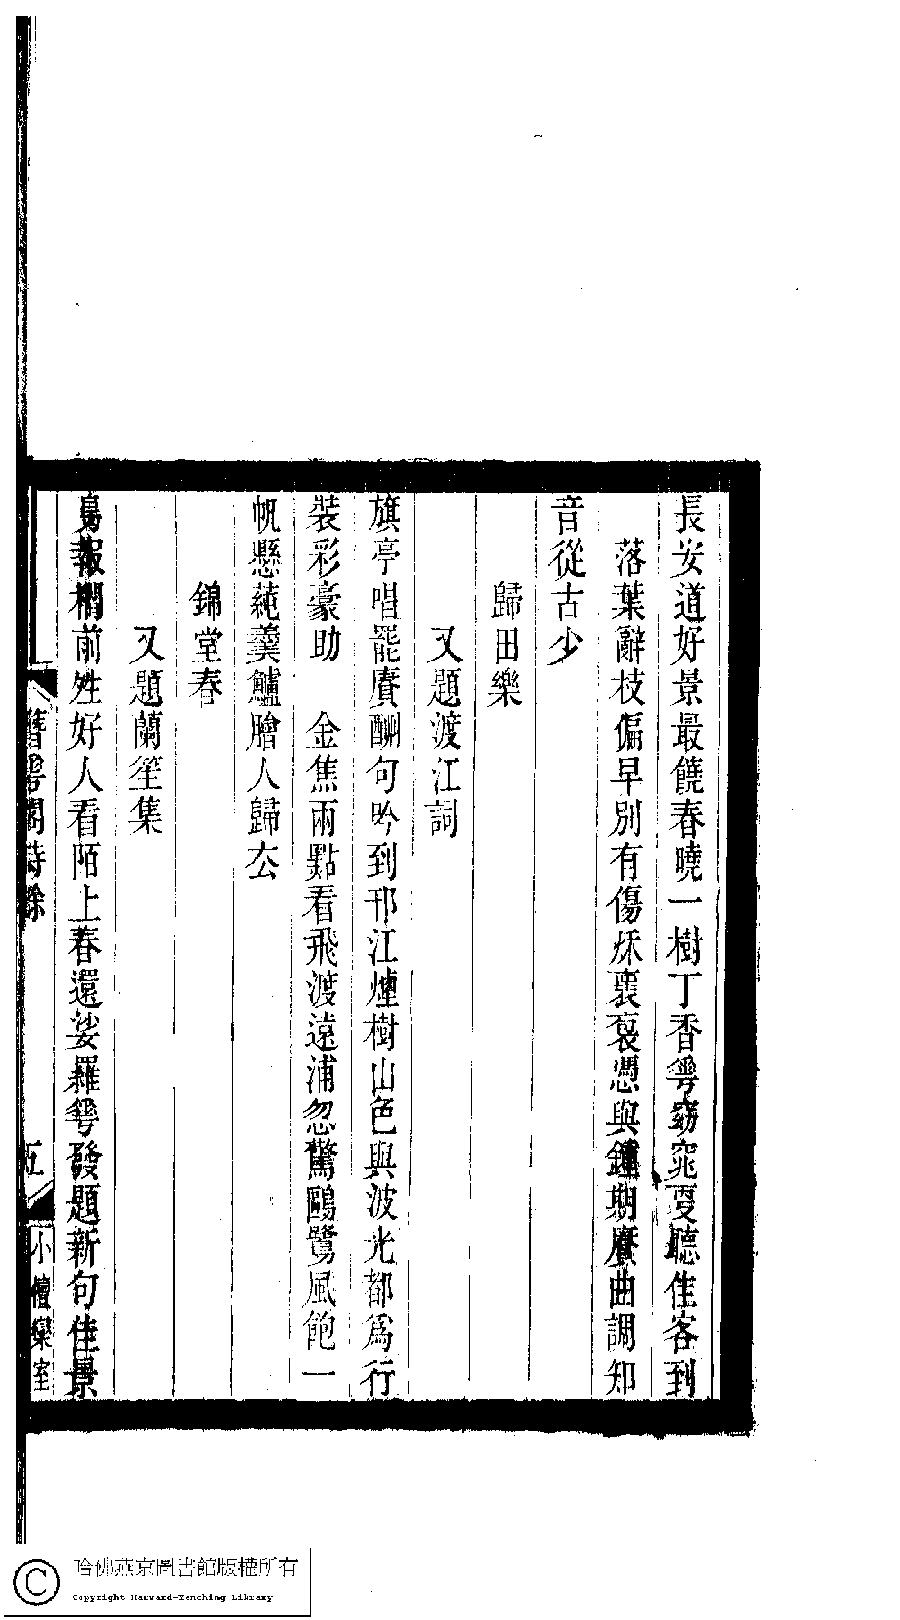 長安道好景最饒春曉一樹丁香𠌶窈窕更聽佳客到
落葉辭枝偏早別有傷秌褱袌憑與鍾期賡曲調知
音從古少
歸田樂
又題渡江詞
旗亭唱罷賡酬句吟到邗江煙樹山色與波光都爲行
裝彩豪助　金焦兩點看飛渡遠浦忽驚鷗鷺風飽一
帆懸蒓羹鱸膾人歸厺
錦堂春
又題蘭笙集
鳥報櫩前夝好人看陌上春還娑羅𠌶發題新句佳景
簪𠌶閣詩餘　五　小檀欒室
哈佛燕京圖書館版權所有
Copyright Harvard-Yenching Library